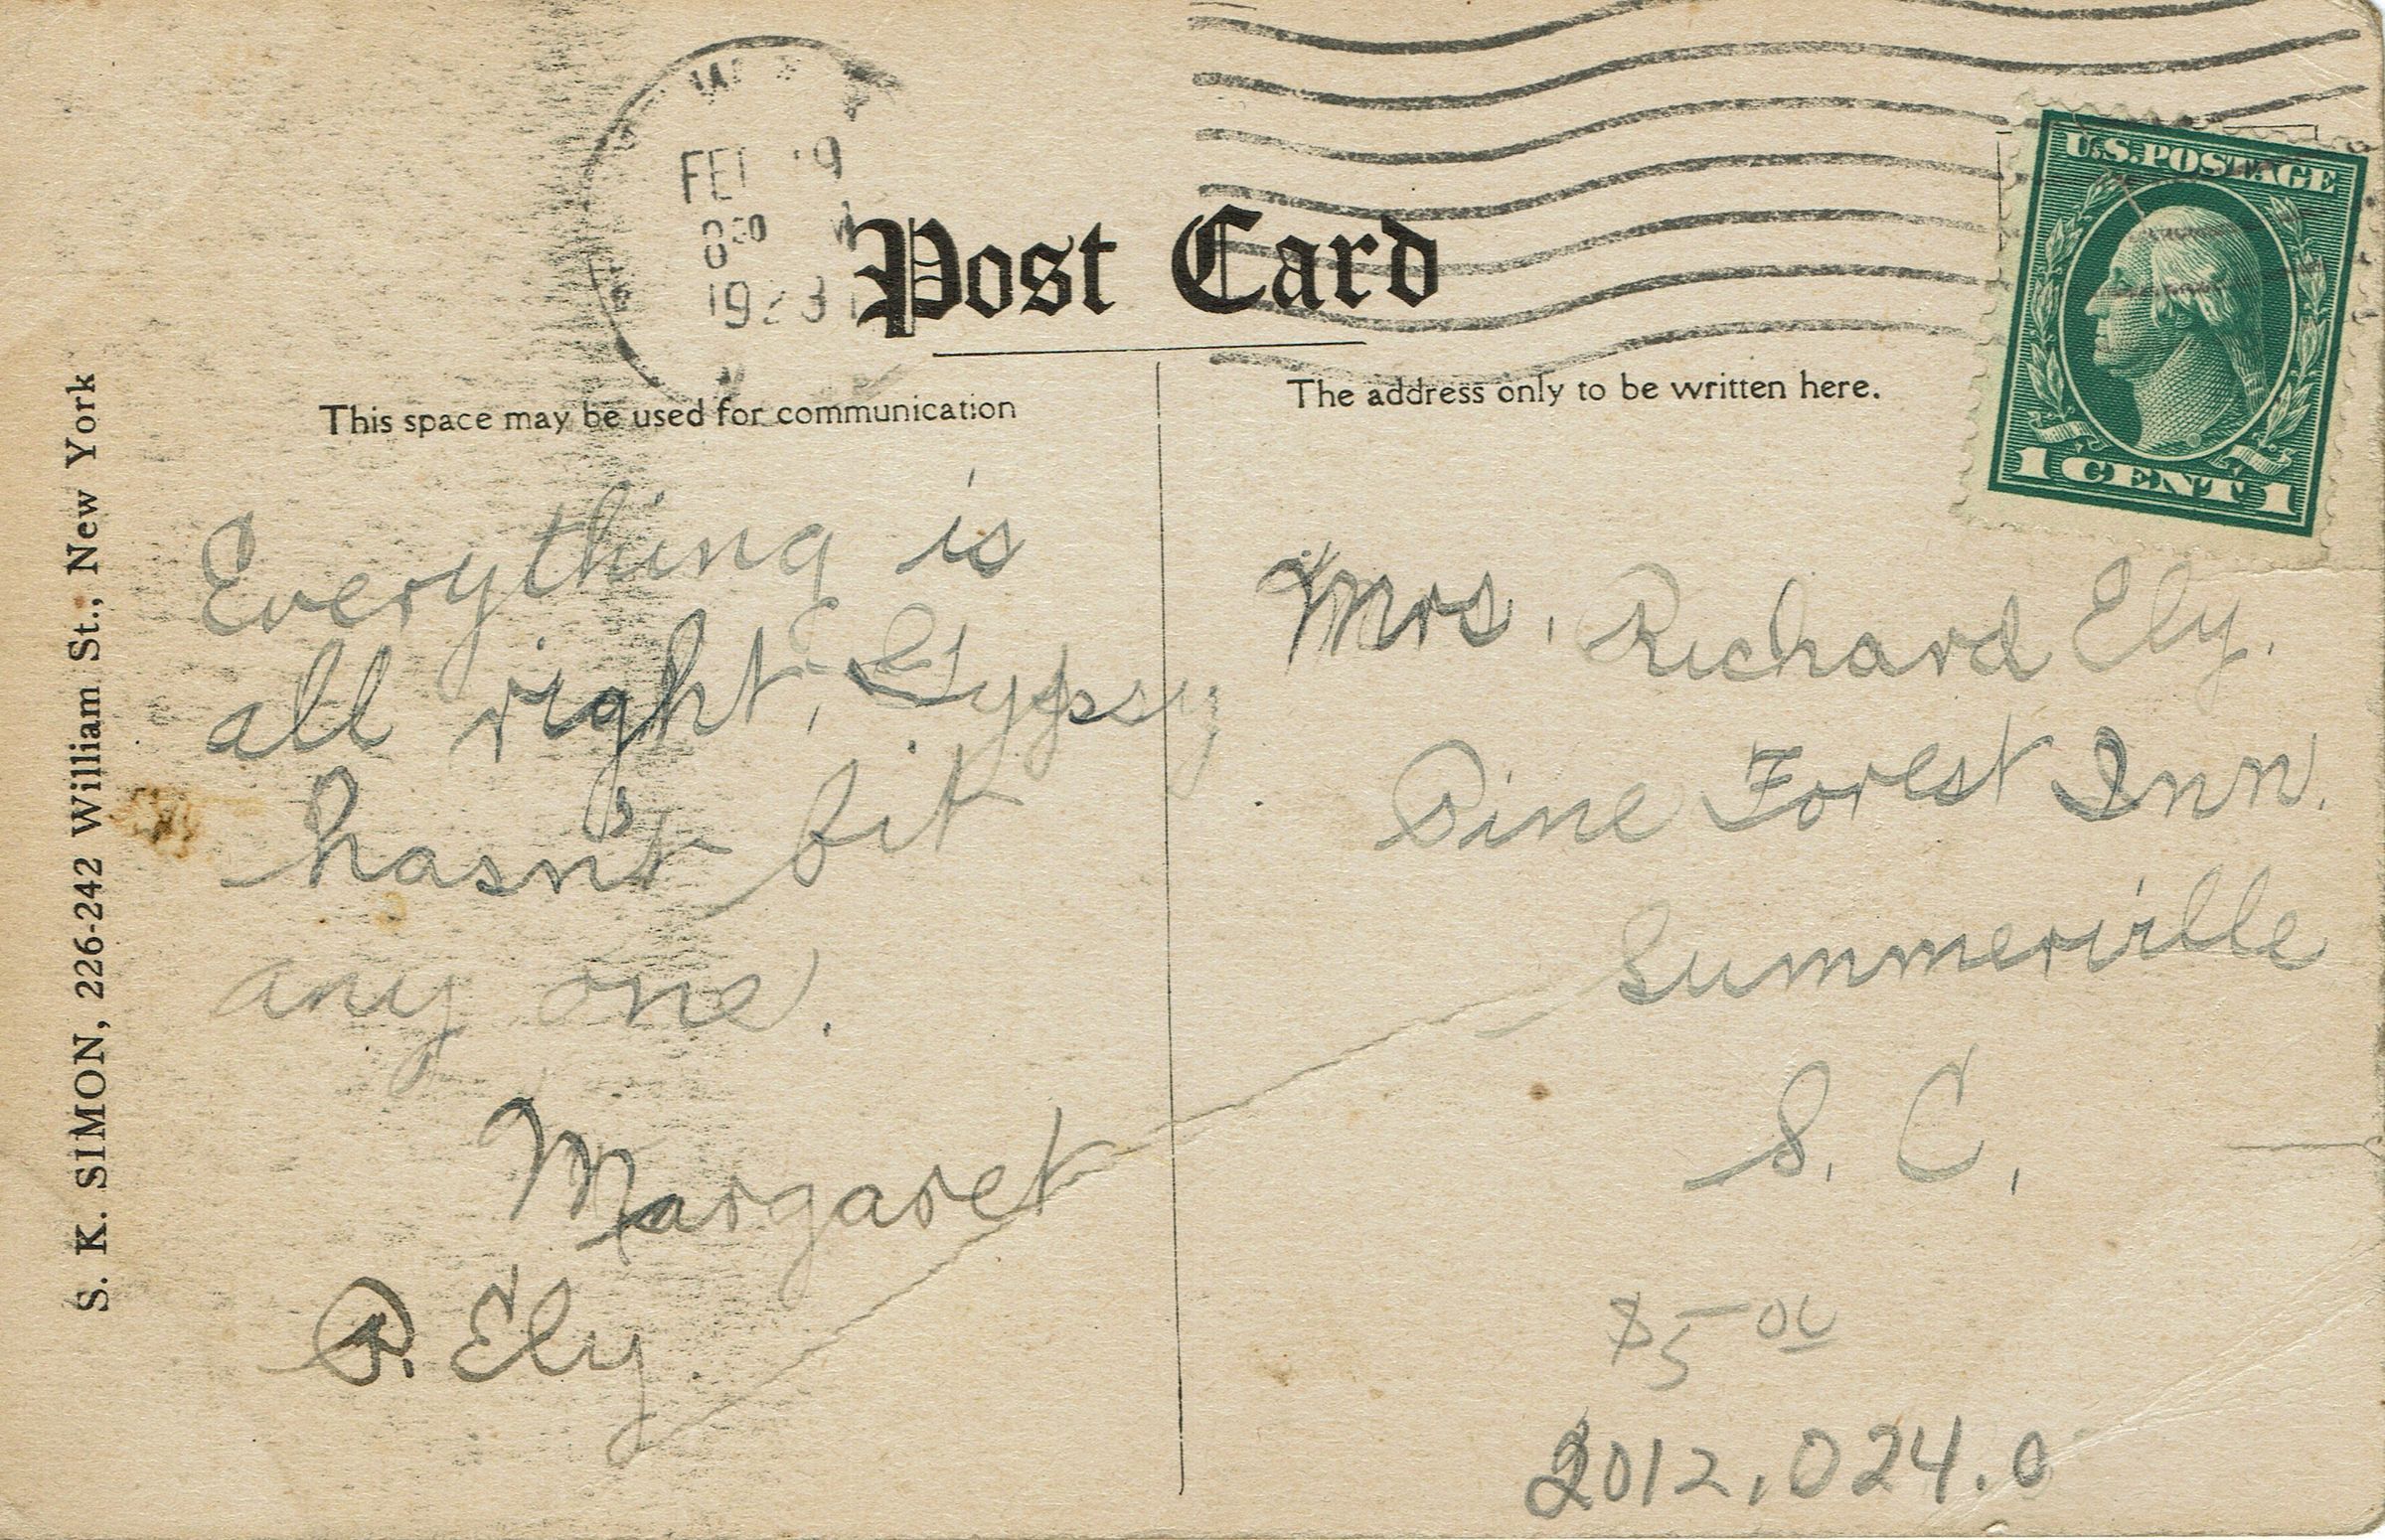 FE 9
830
19 3
Post Card
U.S.POSTAGE
1 CENT 1
This space may be used for communication
The address only to be written here.
S. K. SIMON, 226-242 William St., New York
Everything is
all right, Gypsy
hasn't bit
any one.
Margaret
P. Ely.
Mrs. Richard Ely.
Pine Forest Inn.
Summerville
S. C.
$5 00
2012.024.0